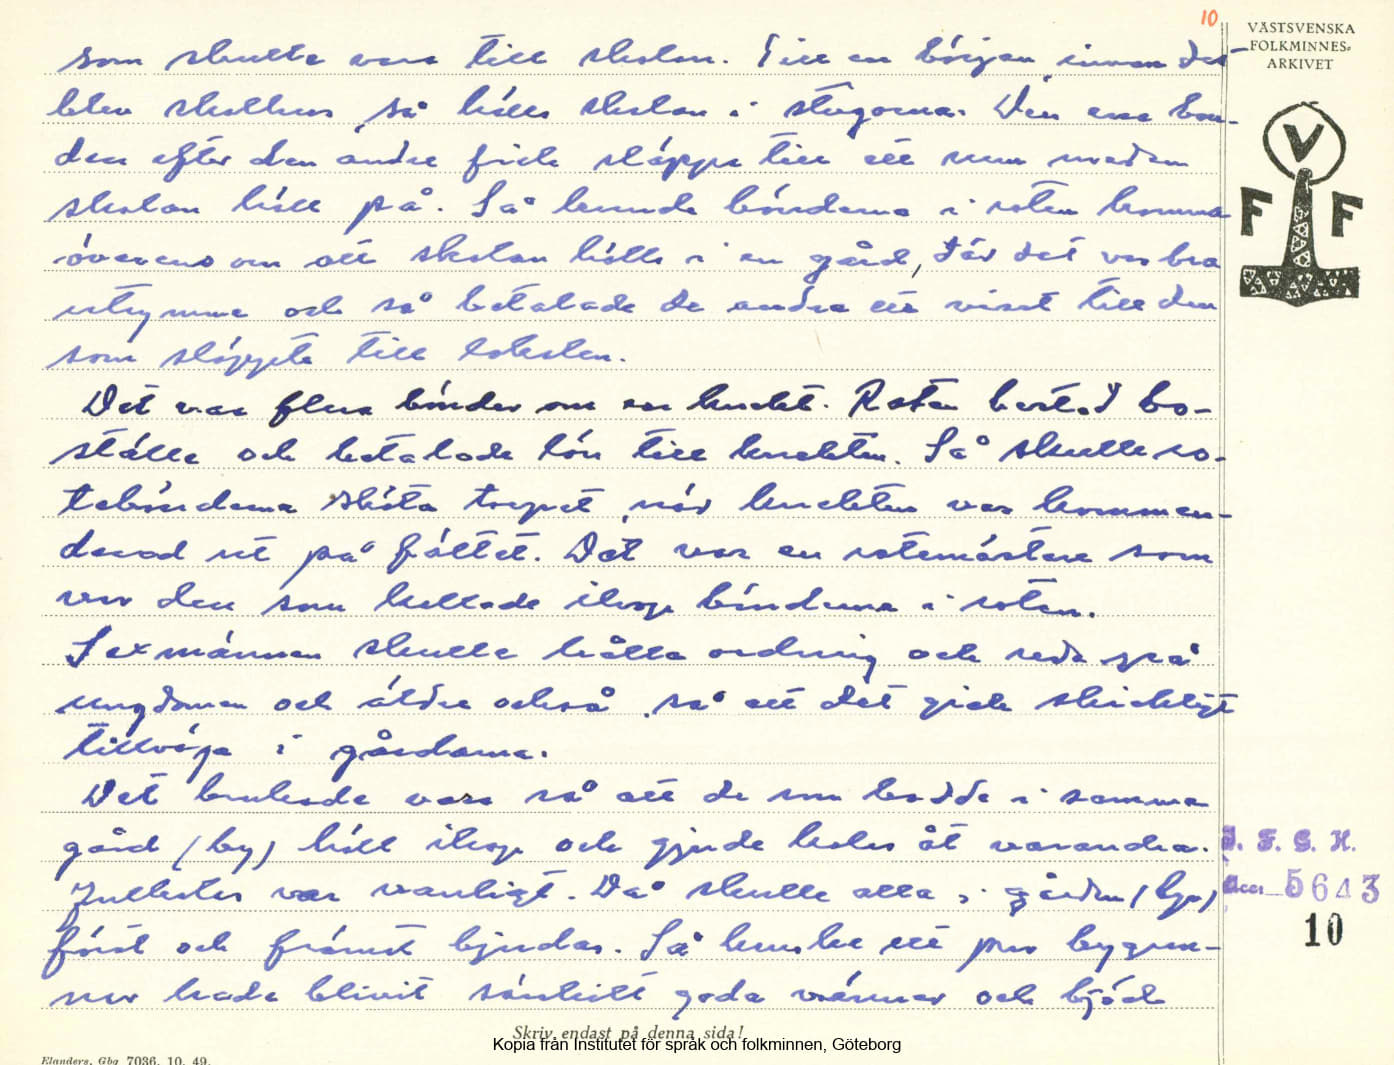 10
VÄSTSVENSKA
FOLKMINNES-
ARKIVET
V
F F
som skulle vara till skolan. Till en början, innan det
blev skolhus, så hölls skolan i stugorna. Den ena bon-
den efter den andre fick släppa till ett rum medan
skolan höll på. Så kunde bönderna i roten komma
överens om att skolan hölls i en gård, där det var bra
utrymme och så betalade de andra ett visst till den
som släppte till lokalen.
Det var flera bönder om en knekt. Roten bestod bo-
ställe och betalade lön till knekten. Så skulle ro-
tebönderna sköta torpet, när knekten var kommen-
derad ut på fältet. Det var en rotemästare som
var den som kallade ihop bönderna i roten.
Sexmannen skulle hålla ordning och reda på
ungdomen och äldre också, så att det gick skickligt
tillväga i gårdarna.
Det brukade vara så att de som bodde i samma
gård (by) höll ihop och gjorde kalas åt varandra.
Julkalas var vanligt. Då skulle alla i gården (byn)
först och främst bjudas. Så kanske ett par bygran-
nar hade blivit särskilt goda vänner och bjöd
I. F. G. H.
Acc. 5643
10
Skriv endast på denna sida!
Kopia från Institutet för språk och folkminnen, Göteborg
Elanders, Gbg 7036. 10. 49.